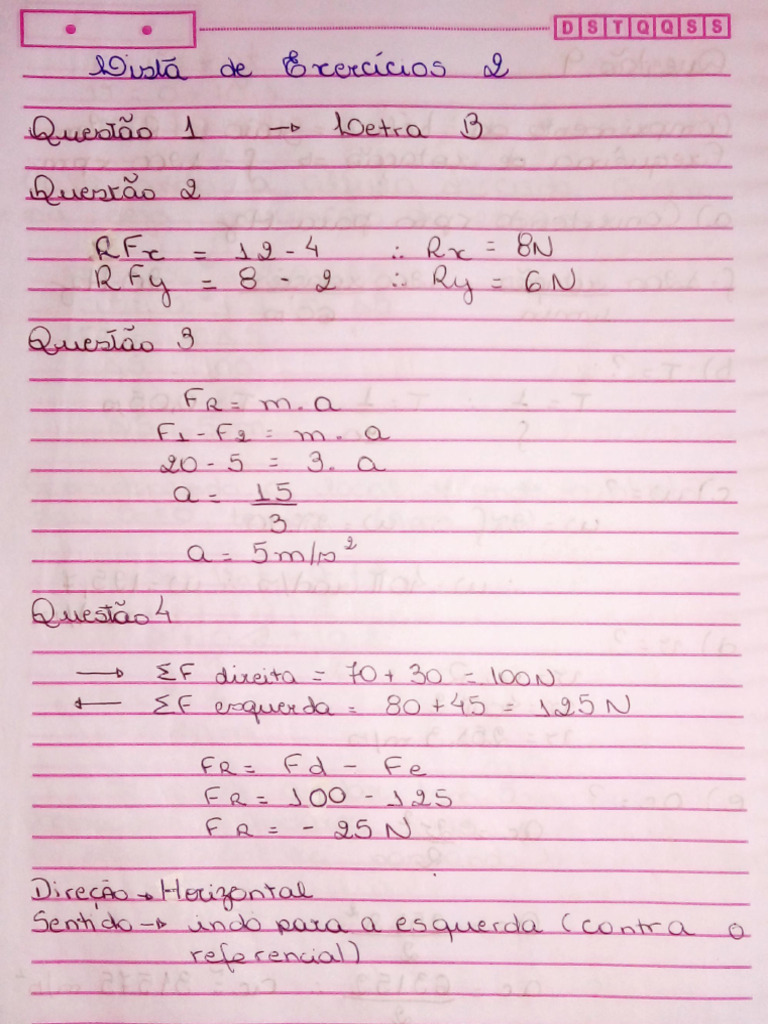 D S T Q Q S S
Lista de Exercícios 2
Questão 1 → Letra B
Questão 2
RFx = 12 - 4 ∴ Rx = 8N
RFy = 8 - 2 ∴ Ry = 6N
Questão 3
FR = m . a
F1 - F2 = m . a
20 - 5 = 3 . a
a = 15/3
a = 5m/s²
Questão 4
→ ΣF direita = 70 + 30 = 100N
← ΣF esquerda = 80 + 45 = 125N
FR = Fd - Fe
FR = 100 - 125
FR = - 25N
Direção → Horizontal
Sentido → indo para a esquerda (contra o
referencial)